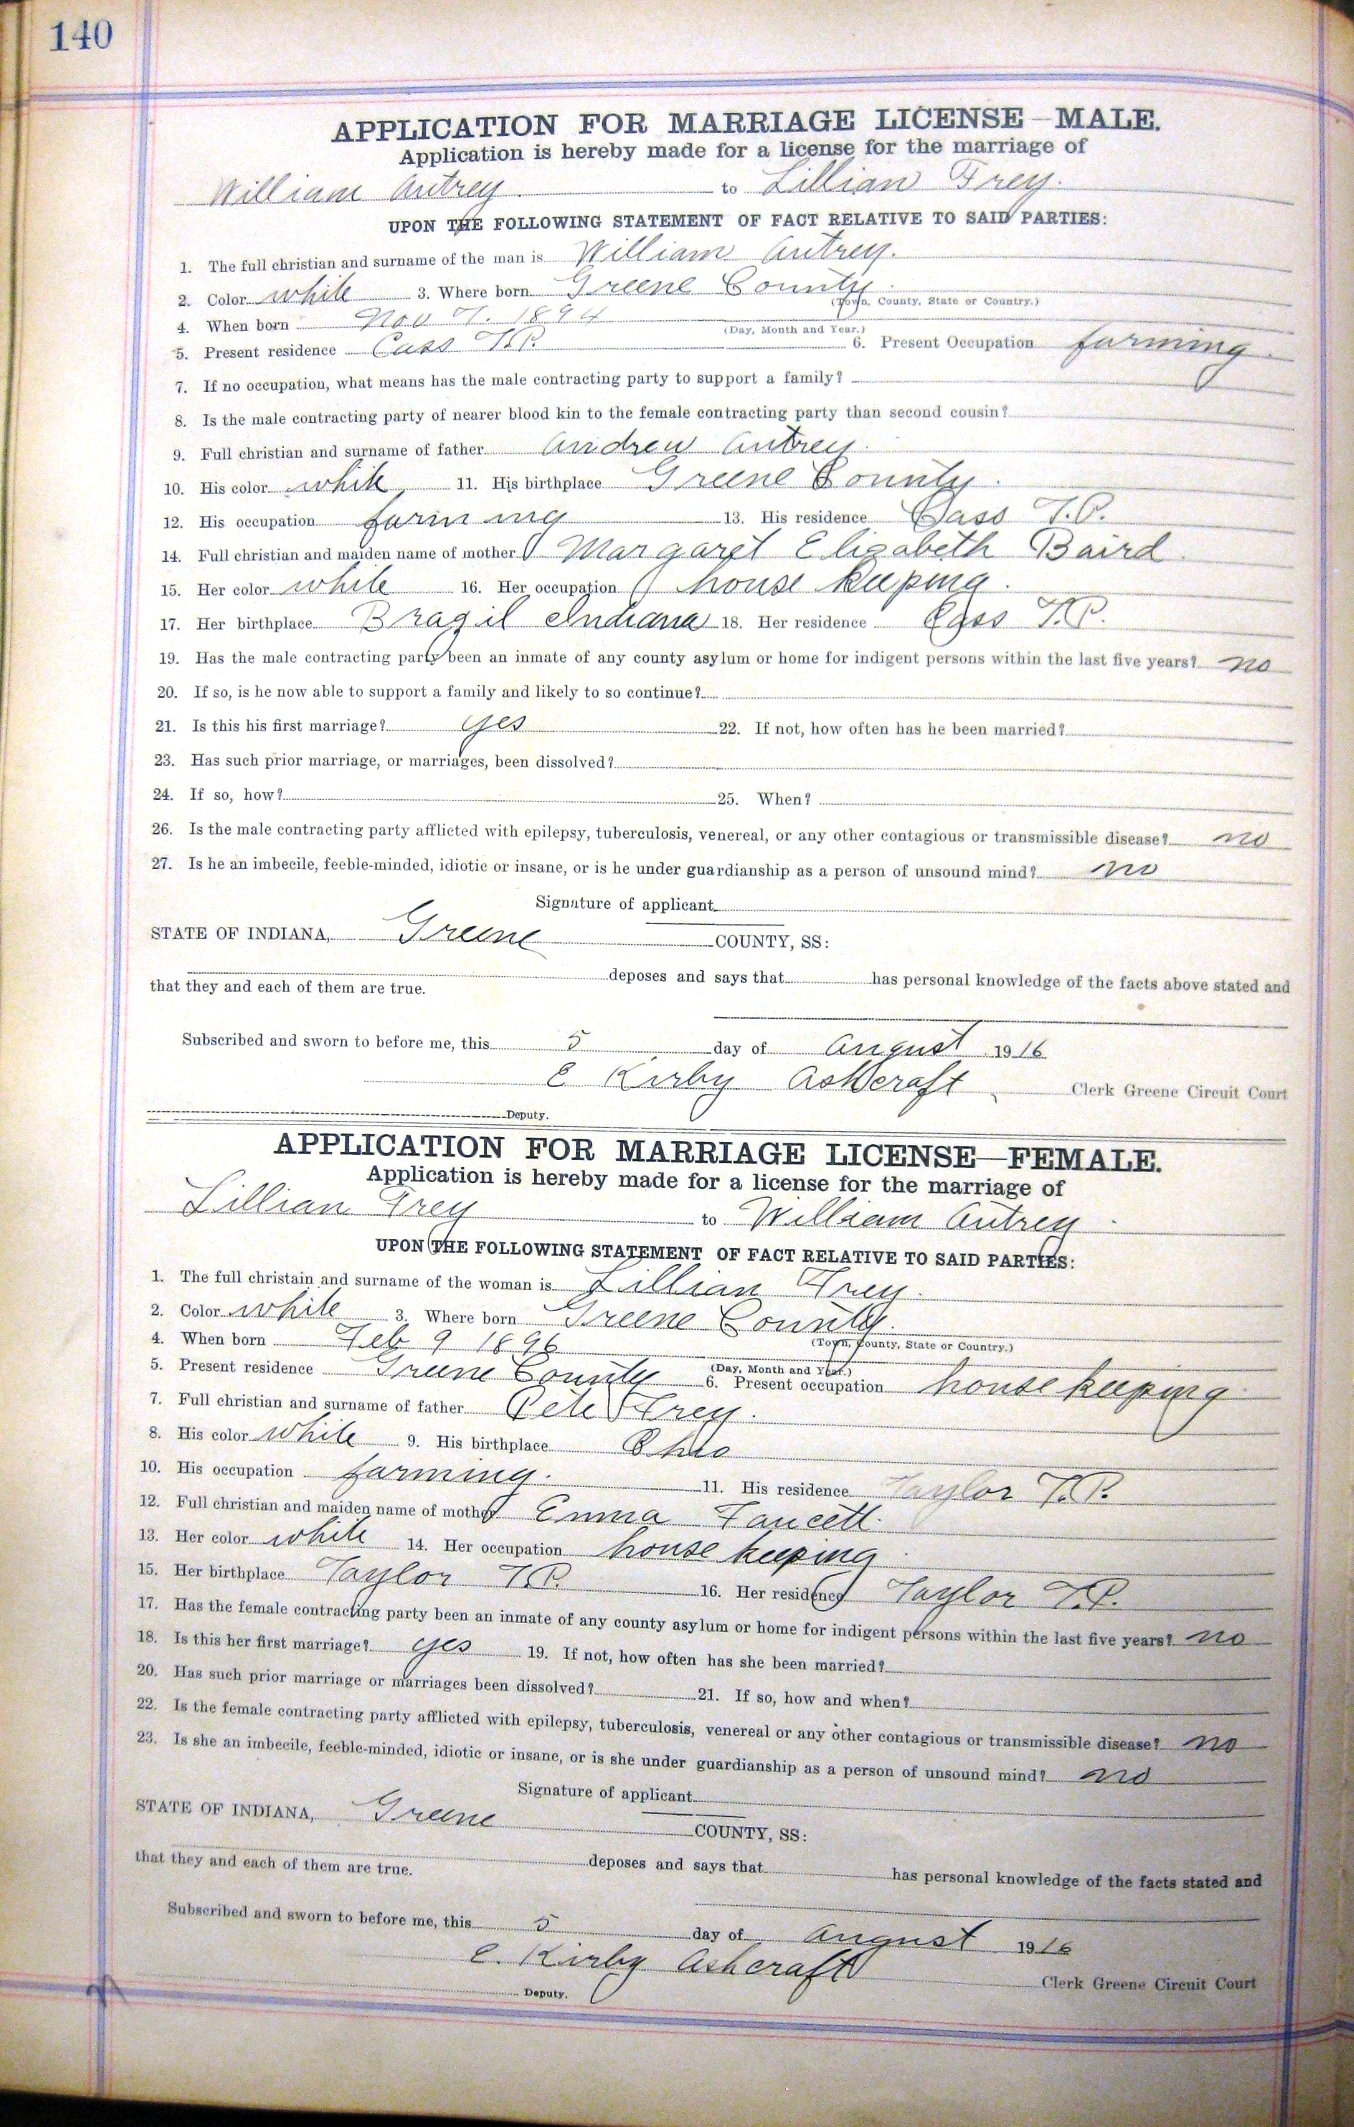 140
APPLICATION FOR MARRIAGE LICENSE—MALE.
Application is hereby made for a license for the marriage of
William Autrey to Lillian Frey.
UPON THE FOLLOWING STATEMENT OF FACT RELATIVE TO SAID PARTIES:
1. The full christian and surname of the man is William Autrey.
2. Color white 3. Where born Greene County.
(Town, County, State or Country.)
4. When born Nov 7. 1894
(Day, Month and Year.)
5. Present residence Cass T.P. 6. Present Occupation farming.
7. If no occupation, what means has the male contracting party to support a family?
8. Is the male contracting party of nearer blood kin to the female contracting party than second cousin?
9. Full christian and surname of father Andrew Autrey.
10. His color white 11. His birthplace Greene County.
12. His occupation farming 13. His residence Cass T.P.
14. Full christian and maiden name of mother Margaret Elizabeth Baird.
15. Her color white 16. Her occupation house keeping.
17. Her birthplace Brazil Indiana 18. Her residence Cass T.P.
19. Has the male contracting party been an inmate of any county asylum or home for indigent persons within the last five years? no
20. If so, is he now able to support a family and likely to so continue?
21. Is this his first marriage? yes 22. If not, how often has he been married?
23. Has such prior marriage, or marriages, been dissolved?
24. If so, how? 25. When?
26. Is the male contracting party afflicted with epilepsy, tuberculosis, venereal, or any other contagious or transmissible disease? no
27. Is he an imbecile, feeble-minded, idiotic or insane, or is he under guardianship as a person of unsound mind? no
Signature of applicant
STATE OF INDIANA, Greene COUNTY, SS:
deposes and says that has personal knowledge of the facts above stated and
that they and each of them are true.
Subscribed and sworn to before me, this 5 day of August 1916
E Kirby Ashcraft Clerk Greene Circuit Court
Deputy.
APPLICATION FOR MARRIAGE LICENSE—FEMALE.
Application is hereby made for a license for the marriage of
Lillian Frey to William Autrey.
UPON THE FOLLOWING STATEMENT OF FACT RELATIVE TO SAID PARTIES:
1. The full christain and surname of the woman is Lillian Frey.
2. Color white 3. Where born Greene County.
(Town, County, State or Country.)
4. When born Feb 9 1896
(Day, Month and Year.)
5. Present residence Greene County 6. Present occupation house keeping.
7. Full christian and surname of father Pete Frey.
8. His color white 9. His birthplace Ohio
10. His occupation farming. 11. His residence Taylor T.P.
12. Full christian and maiden name of mother Emma Faucett.
13. Her color white 14. Her occupation house keeping.
15. Her birthplace Taylor T.P. 16. Her residence Taylor T.P.
17. Has the female contracting party been an inmate of any county asylum or home for indigent persons within the last five years? no
18. Is this her first marriage? yes 19. If not, how often has she been married?
20. Has such prior marriage or marriages been dissolved? 21. If so, how and when?
22. Is the female contracting party afflicted with epilepsy, tuberculosis, venereal or any other contagious or transmissible disease? no
23. Is she an imbecile, feeble-minded, idiotic or insane, or is she under guardianship as a person of unsound mind? no
Signature of applicant
STATE OF INDIANA, Greene COUNTY, SS:
deposes and says that has personal knowledge of the facts stated and
that they and each of them are true.
Subscribed and sworn to before me, this 5 day of August 1916
E. Kirby Ashcraft Clerk Greene Circuit Court
Deputy.